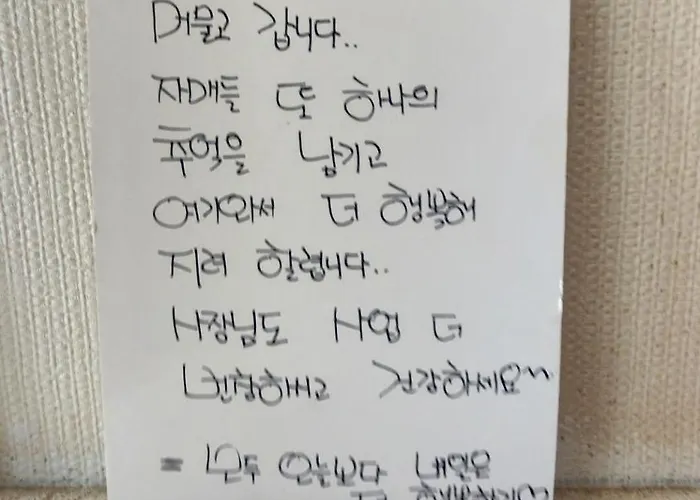 머물고 갑니다..
자매들 또 하나의
추억을 남기고
여기와서 더 행복해
지려 할렵니다..
사장님도 사업 더
번창하시고 건강하세요~~
= 모두 오늘보다 내일은
더 행복하기며